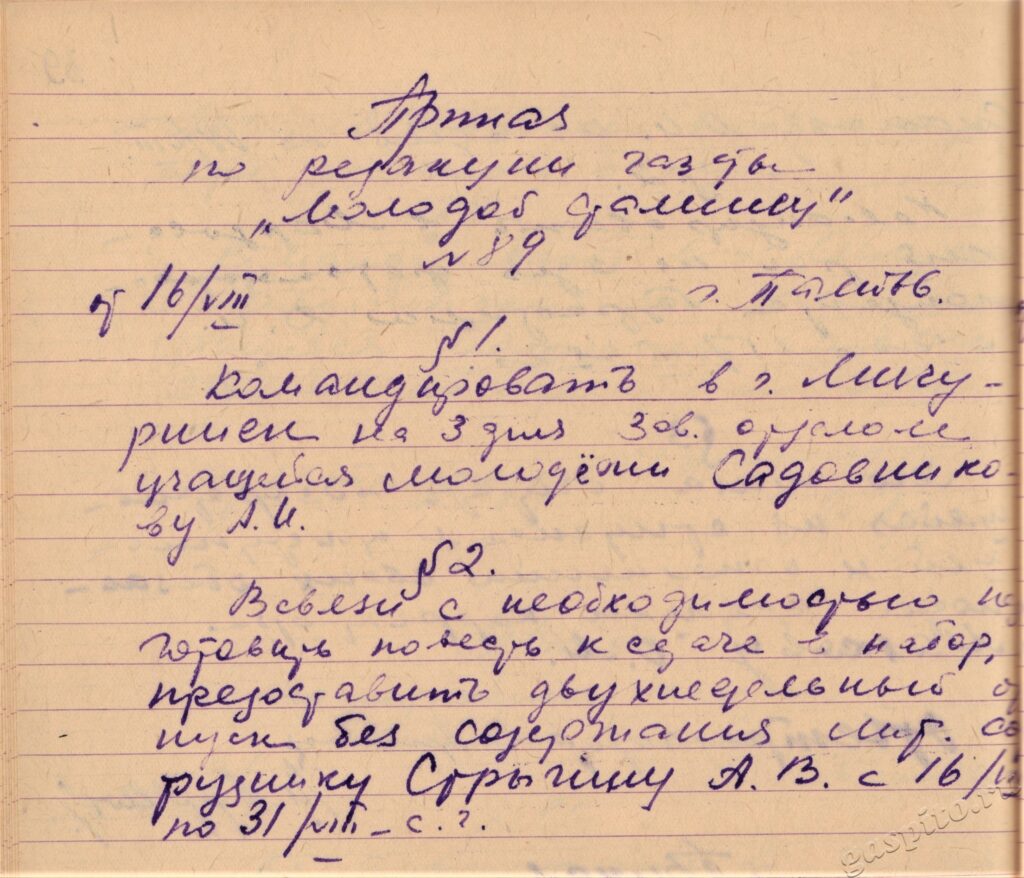 Приказ
по редакции газеты
„Молодой сталинец"
№ 89
от 16/VIII г. Тамбов.
§ 1.
Командировать в г. Мичу-
ринск на 3 дня зав. отделом
учащейся молодёжи Садовнико-
ву А.И.
§ 2.
В связи с необходимостью по
готовить повесть к сдаче в набор,
предоставить двухнедельный от
пуск без содержания лит. сот
руднику Стрыгину А. В. с 16/VIII
по 31/VIII – с. г.
gaspito.ru